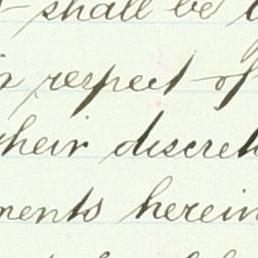 shall be
respect of
their discret
ments herein